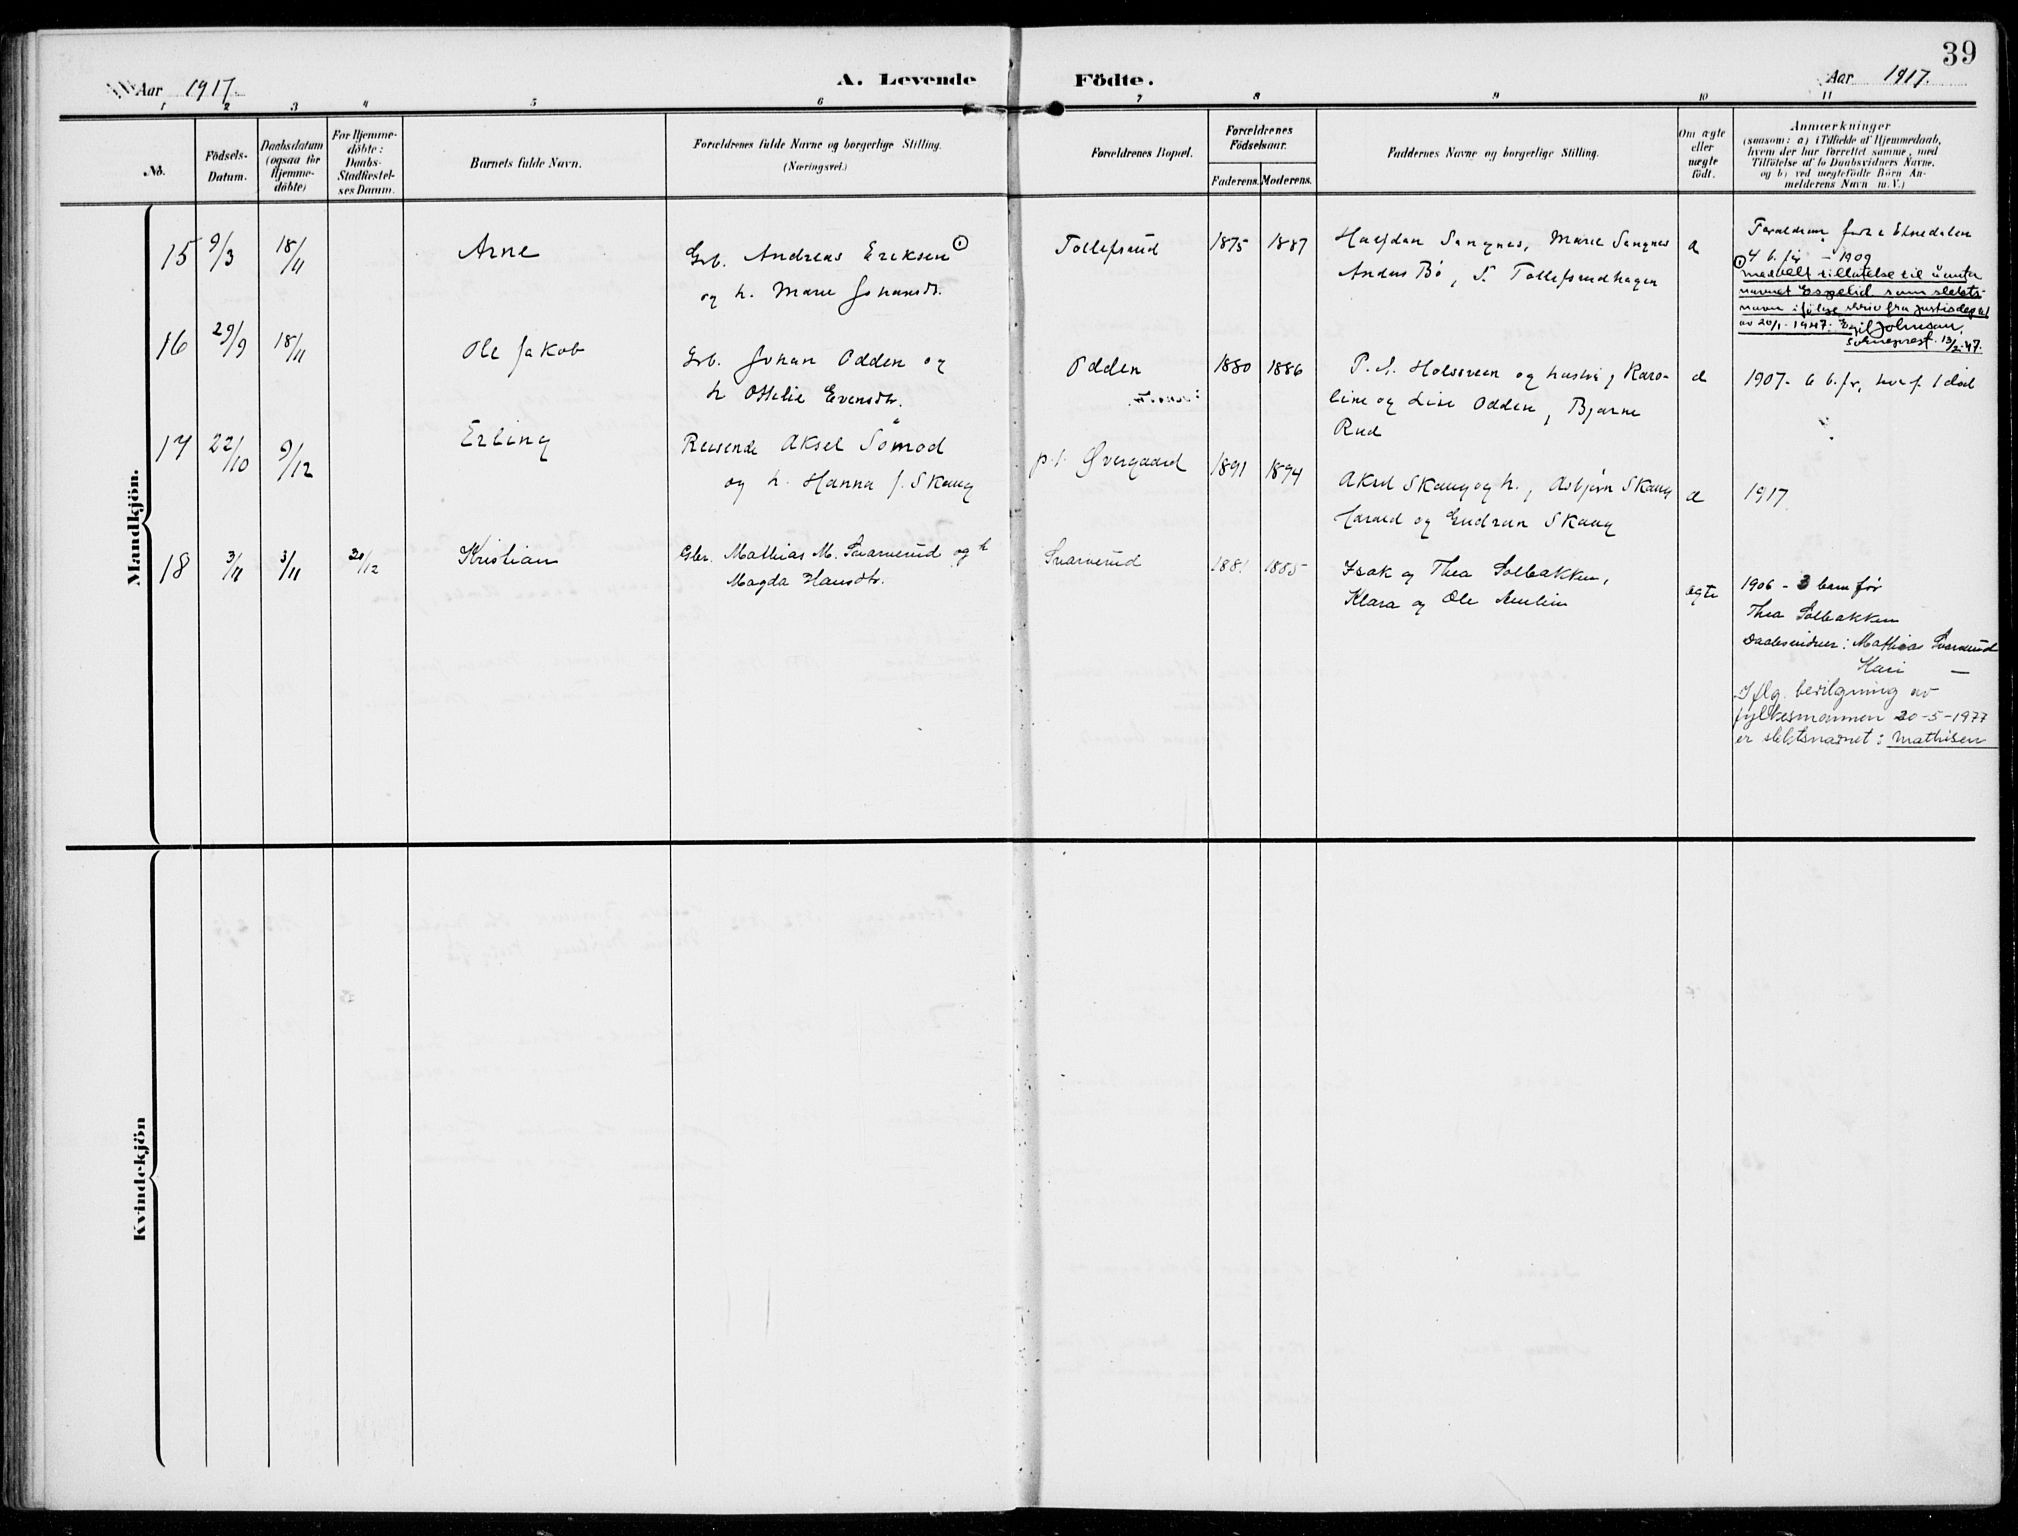 39
Aar 1917.
A. Levende Födte.
Aar 1917.
1 2 3 4 5 6 7 8 9 10 11
No.
Födsels-
Datum.
Daabsdatum
(ogsaa for
Hjemme-
döbte)
For Hjemme-
döbte:
Daabs-
Stadfæstel-
ses Datum.
Barnets fulde Navn.
Forældrenes fulde Navne og borgerlige Stilling.
(Næringsvei.)
Forældrenes Bopæl.
Forældrenes
Födselsaar.
Faderens. Moderens.
Faddernes Navne og borgerlige Stilling.
Om ægte
eller
uægte
födt.
Anmærkninger
(saasom: a) i Tilfælde af Hjemmedaab,
hvem der har forrettet samme, med
Tilföielse af to Daabsvidners Navne,
og b) ved uægtefödte Börn An-
melderens Navn m. V.)
Mandkjön.
15 9/3 18/11 Arne
Grb. Andreas Eriksen
og h. Marie Johansdt.
Tollefsrud 1875 1887
Halfdan Sangnes, Marie Sangnes
Anders Bö, Tollefsrudhagen
a
Forældrene fra Etnedalen
4 b. før - 1909
meddelt tillatelse til å anta
navnet Espelid som slekts-
navn ifölge skriv fra Justisdep.
av 20/1-1947. Egil Johnsen,
sokneprest 13/2-47.
16 29/9 18/11 Ole Jakob
Grb. Johan Odden og
h Ottilie Evensdtr.
Odden 1880 1886
P. A. Holssveen og hustru, Karo-
line og Lise Odden, Bjarne
Rud
1907- 6 b. før, hvoraf 1 död
17 22/10 9/12 Erling
Reisende Aksel Sömod
og h. Hanna f. Skaug
p.t. Øvergaard 1891 1894
Aksel Skaug og h., Asbjørn Skaug
Harald og Gudrun Skaug
a
1917
18 3/11 3/11 20/12 Kristian
Gbr. Mathias M. Snarverud og h
Magda Hansdtr.
Snarverud 1881 1885
Isak og Thea Solbakken,
Klara og Ole
ægte
1906 - 3 barn før
Thea Solbakken
Daabsvidner: Mathias Snarverud
Kari —
Iflg. bevilgning av
fylkesmannen 20-5-1977
er slektsnavnet: Mathisen
Kvindekjön